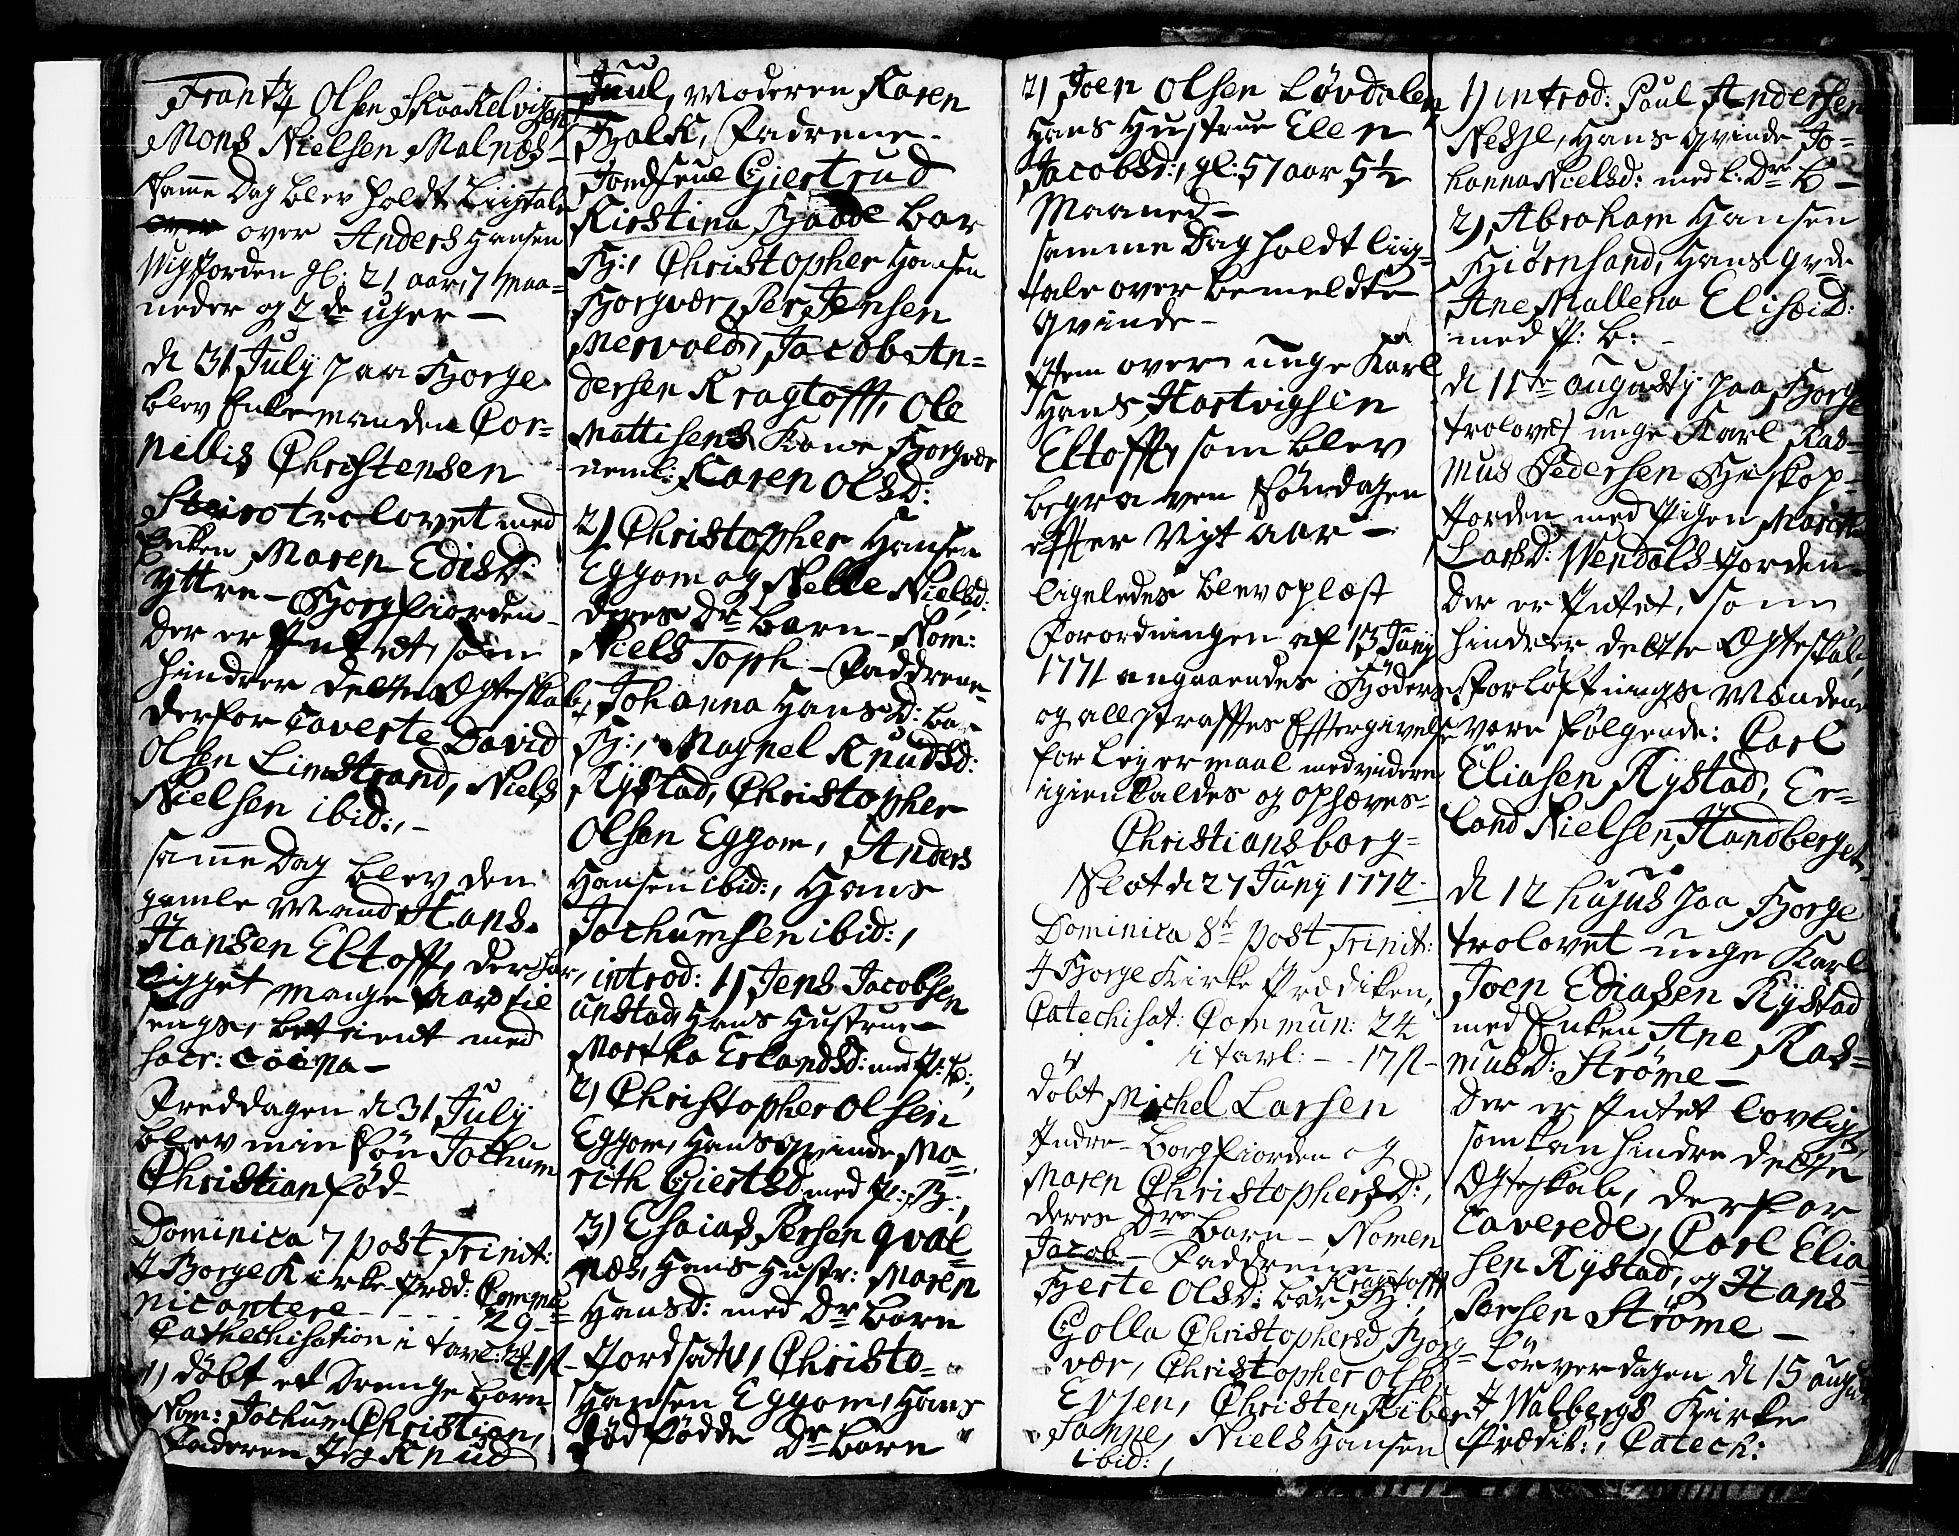 Frantz Olsen Skaakelvigen
Mons Nielsen Malnæs
samme Dag blev holdt Liigtale
over over Anders Hansen
Vigfiorden gl: 21 aar, 7 Maa=
neder og 2de uger —
d 31 July paa Borge
blev Enkemanden Cor=
nellis Christensen
Steiro trolovet med
Enken Maren Edisd:
Yttre- Borgfiorden
Der er Intet, som
hindrer dette Ægteskab,
derfor Caverte David
Olsen Limstrand, Niels
Nielsen ibid:, -
samme Dag blev den
gamle Mand Hans
Hansen Eltofft, der har
ligget mange Aar til
sengs, betient med
sacr: coena -
Freddagen d 31 July
blev min søn Jochum
Christian fød -
Dominica 7 post Trinit:
I Borge Kirke Præd: Commu=
nicantere - - - 29 -
Cathechisation i tavl:
1) døbt et Drenge barn
Nom: Jochum Christian,
Faderen Knud
Juul, Moderen Karen
Falk, Fadrene -
Jomfrue Giertrud
Kirstina bar
Christopher Hansen
Borgvær, Per Jensen
Mervold, Jacob An=
dersen Kragtofft, Ole
Mattisens Kone Borgvær
neml: Karen Olsd:
2) Christopher Hansen
Eggom og Pelle Nielsd:
deres Dr Barn - Nom:
Niels Toph - Faddrene
Johanna Hansd: bar
Magnel Knudsd:
Rystad, Christopher
Olsen Eggom, Anders
Hansen ibid:, Hans
Jochumsen ibid:,
introd: 1) Jens Jacobsen
Unstad Hans Hustrue
Martha Erlandsd: med P: B:,
2) Christopher Olsen
Eggom, Hans Qvinde Ma=
rith Giertsd med P: B:,
3) Esaias Persen Qval=
næs, Hans Hustr: Maren
Hansd: med Dr Barn
Jordsatt, Christo-
Hansen Eggom, Hans
Død fødde Dr Barn
2) Joen Olsen Løvdalen
Hans Hustrue Elen
Jacobsd:, gl: 57 aar 5½
Maaned -
samme Dag holdt liig=
tale over bemeldte
Qvinde -
Item over unge Karl
Hans Hartvigsen
Eltofft, som blev
begraven Søndagen
efter Nyt aar -
ligeledes blev oplæst
Forordningen af 13 Juny
1771 angaaendes
og all straffes Eftergivelse
for Leyermaal medvidere
igienkaldes og ophæves -
Christiansborg=
Slot d 27 Juny 1772 -
Dominica 8de post Trinit:
I Borge Kirke Prædiken,
Catechisat: Commun: 24
i tavl: - - 17
døbt Michel Larsen
Indre- Borgfiorden og
Maren Christophersd:,
deres Dr Barn - Nomen
Jacob - Faddrene
Berte Olsd: Kragtofft bar
Golla Christophersd Borg=
vær, Christopher Olsen
Christen Riber
Niels Hansen
ibid:,
1) introd: Paul Andersen
Nesje, Hans Qvinde Jo=
hanna Nielsd: med l: Dr B -
2) Abraham Hansen
Biørnsand, Hans Qvde
Ane Mallena Eliseid:
med P: B: -
d 11te Augusty paa Borge
trolovet unge Karl Ras=
mus Pedersen Biskop-
Jorden med Pigen Marith
Larsd: Wendals-Jorden -
Der er Intet, som
hindrer dette Ægteskab,
Forløftnings Mændene
vare følgende: Carl
Eliasen Rystad, Er=
land Nielsen Handberget
d 12 hujus paa Borge
trolovet unge Karl
Joen Ediasen Rystad
med Enken Ane Ras=
musd: Strøme -
Der er Intet lovligt,
som kan hindre dette
Ægteskab, derfor
Caverede, Carl Elia=
sen Rystad, og Hans
Persen Strøme -
Løverdagen d 15 august
I Walbergs Kirke
Prædik:, Catech: